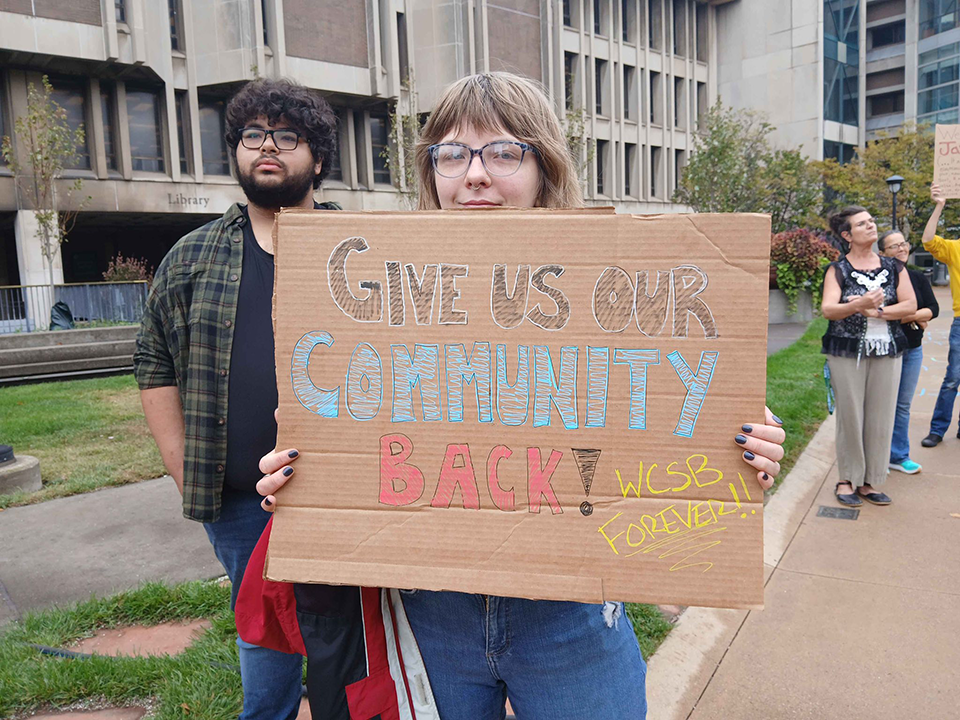 Library
GIVE US OUR
COMMUNITY
BACK!
WCSB
FOREVER!!